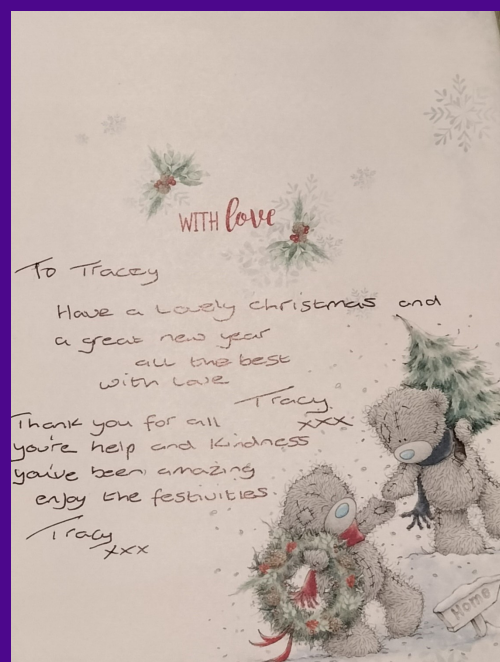 WITH love
To Tracey
Have a Lovely christmas and
a great new year
all the best
with love
Tracy
xxx
Thank you for all
you're help and kindness
you've been amazing
enjoy the festivities.
Tracy
xxx
Home